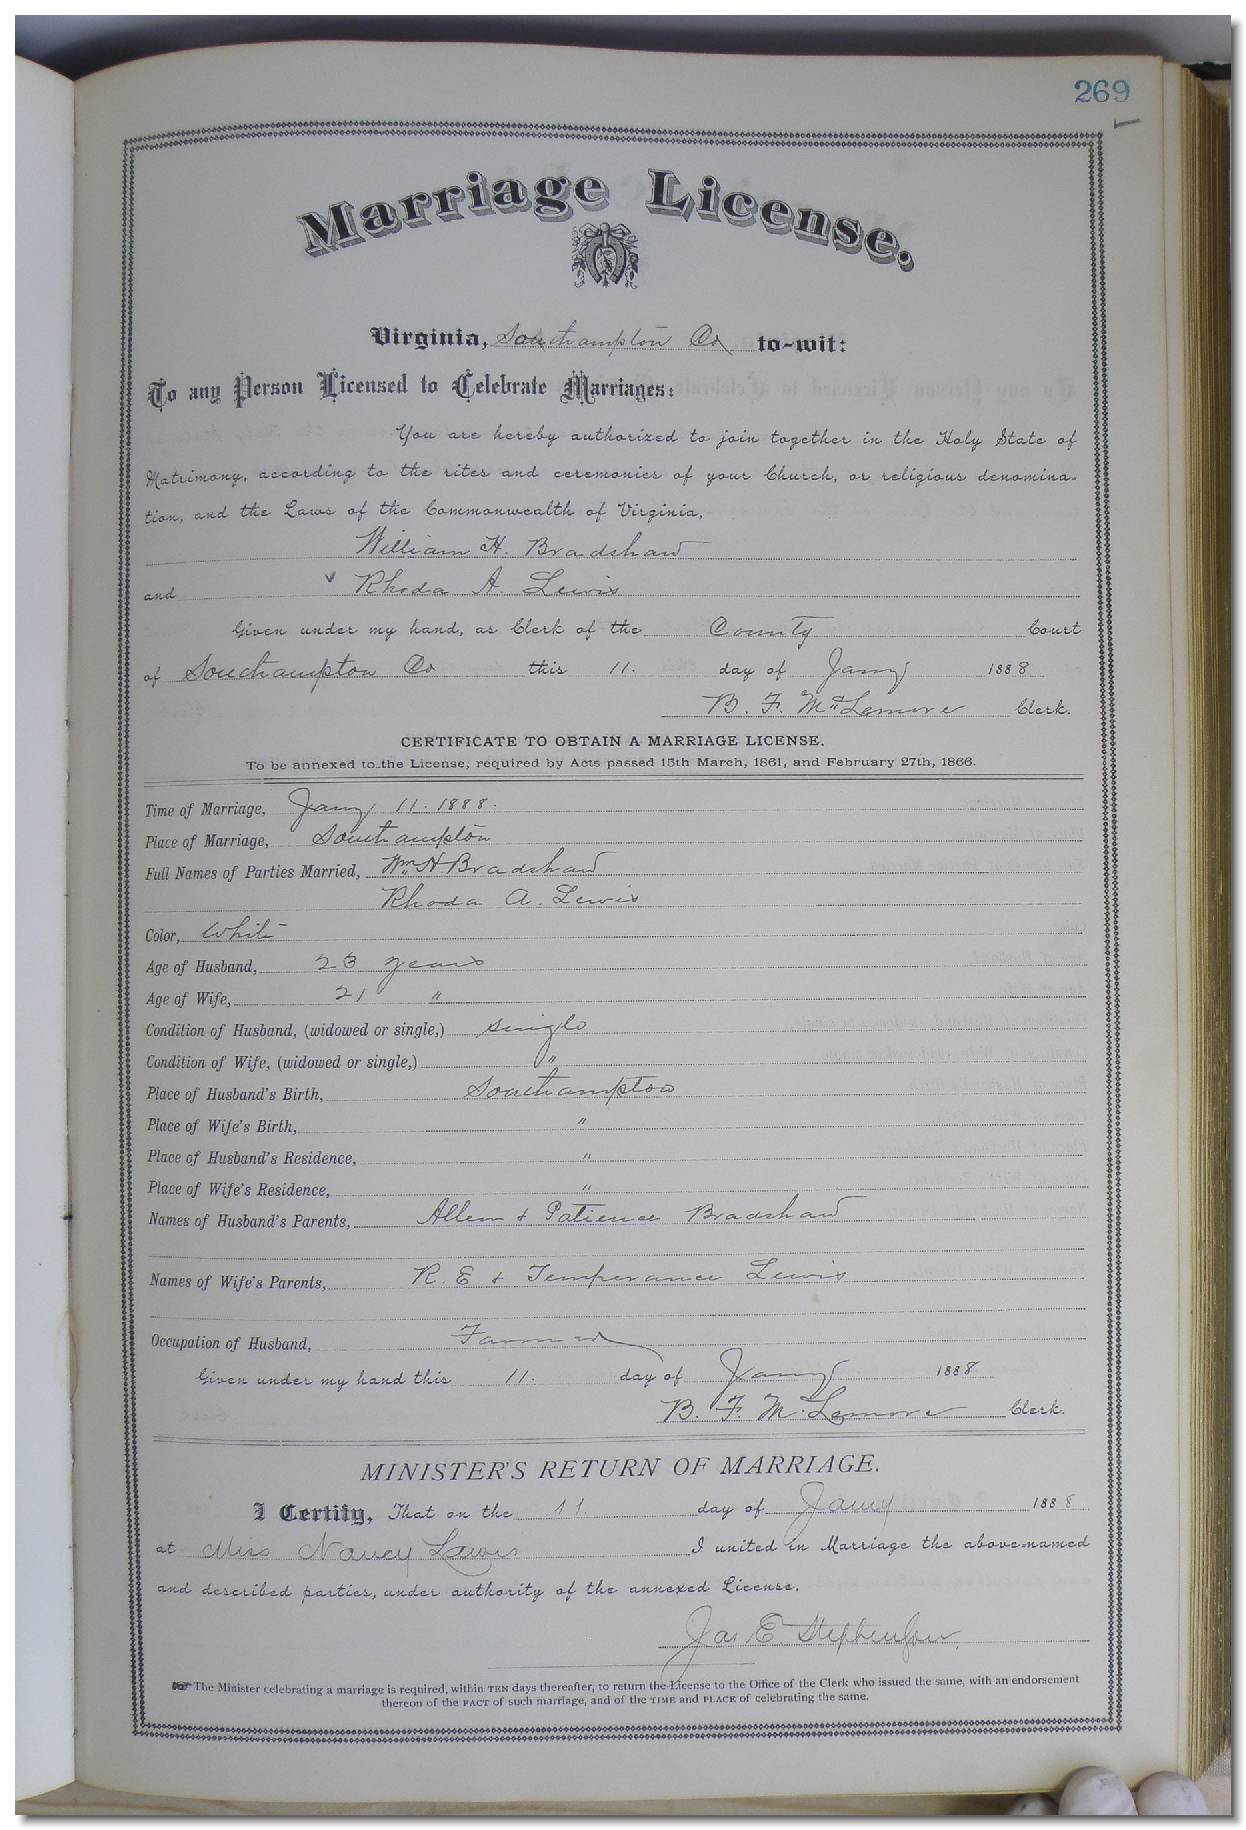 269
Marriage License.
Virginia, Southampton Co to-wit:
To any Person Licensed to Celebrate Marriages:
You are hereby authorized to join together in the Holy State of
Matrimony, according to the rites and ceremonies of your Church, or religious denomina-
tion, and the Laws of the Commonwealth of Virginia,
William H. Bradshaw
and Rhoda A. Lewis
Given under my hand, as Clerk of the County Court
of Southampton Co this 11. day of Jany 1888
B. F. McLemore Clerk.
CERTIFICATE TO OBTAIN A MARRIAGE LICENSE.
To be annexed to the License, required by Acts passed 15th March, 1861, and February 27th, 1866.
Time of Marriage, Jany 11. 1888.
Place of Marriage, Southampton
Full Names of Parties Married, Wm H Bradshaw
Rhoda A. Lewis
Color, White
Age of Husband, 23 years
Age of Wife, 21 "
Condition of Husband, (widowed or single,) single
Condition of Wife, (widowed or single,) "
Place of Husband's Birth, Southampton
Place of Wife's Birth, "
Place of Husband's Residence, "
Place of Wife's Residence, "
Names of Husband's Parents, Allen & Patience Bradshaw
Names of Wife's Parents, R. E & Temperance Lewis
Occupation of Husband, Farmer
Given under my hand this 11. day of Jany 1888
B. F. McLemore Clerk.
MINISTER'S RETURN OF MARRIAGE.
I Certify, That on the 11 day of Jany 1888
at Miss Nancy Lewis I united in Marriage the above-named
and described parties, under authority of the annexed License.
Jas E. Stephenson
The Minister celebrating a marriage is required, within TEN days thereafter, to return the License to the Office of the Clerk who issued the same, with an endorsement
thereon of the FACT of such marriage, and of the TIME and PLACE of celebrating the same.